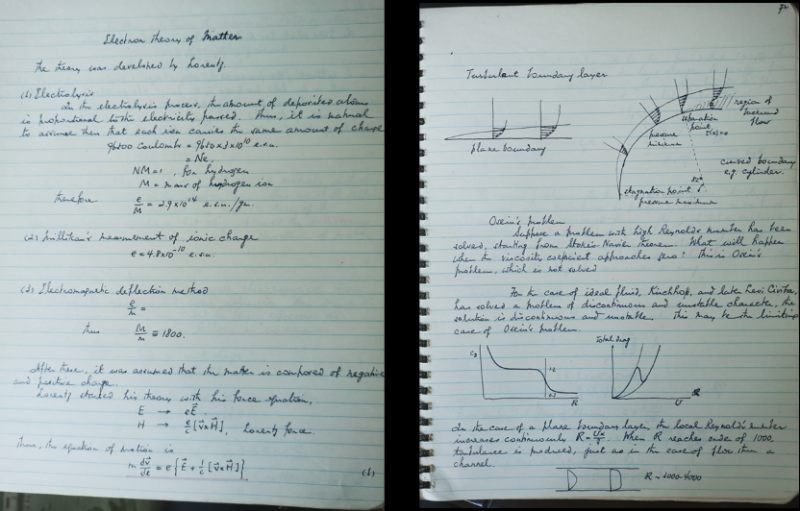 Electron theory of Matter
The theory was developed by Lorentz.
(1) Electrolysis
In the electrolysis process, the amount of deposited atoms
is proportional to the electricity passed. Thus, it is natural
to assume then that each ion carries the same amount of charge
9650 Coulombs = 9650 x 3 x 10^10 e.s.u.
= Ne.
NM = 1, for hydrogen
M = mass of hydrogen ion
therefore e/M = 2.9 x 10^14 e.s.u./gm.
(2) Millikan's measurement of ionic charge
e = 4.8 x 10^-10 e.s.u.
(3) Electromagnetic deflection method
e/m =
thus M/m ≅ 1800.
After these, it was assumed that the matter is composed of negative
and positive charge.
Lorentz started his theory with his force equation,
E → eE.
H → e/c [v x H], Lorentz force.
Thus, the equation of motion is
m dv/dt = e { E + 1/c [v x H] } (1)
Turbulent boundary layer
plane boundary
region of
backward
flow
separation
point
pressure
minimum
curved boundary
e.g. cylinder.
82°
stagnation point
pressure maximum
Oseen's problem
Suppose a problem with high Reynolds number has been
solved, starting from Stokes Navier theorem. What will happen
when the viscosity coefficient approaches zero? This is Oseen's
problem, which is not solved
In the case of ideal fluid, Kirchhoff, and late Levi Civita,
has solved a problem of discontinuous and unstable character, the
solution is discontinuous and unstable. This may be the limiting
case of Oseen's problem.
Total drag
R
U
In the case of a plane boundary layer, the local Reynold's number
increases continuously R = Ux/ν. When R reaches order of 1000
turbulence is produced, just as in the case of flow thru a
channel.
R ~ 2000-4000